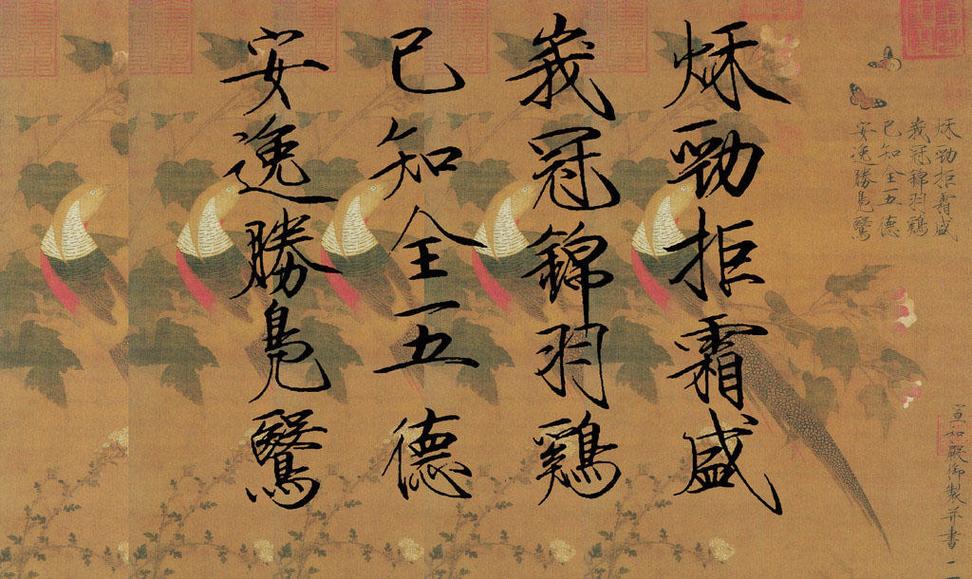 秌勁拒霜盛
峩冠錦羽鷄
已知全五德
安逸勝鳧鷖
秌勁拒霜盛
峩冠錦羽鷄
已知全五德
安逸勝鳧鷖
宣和殿御製并書